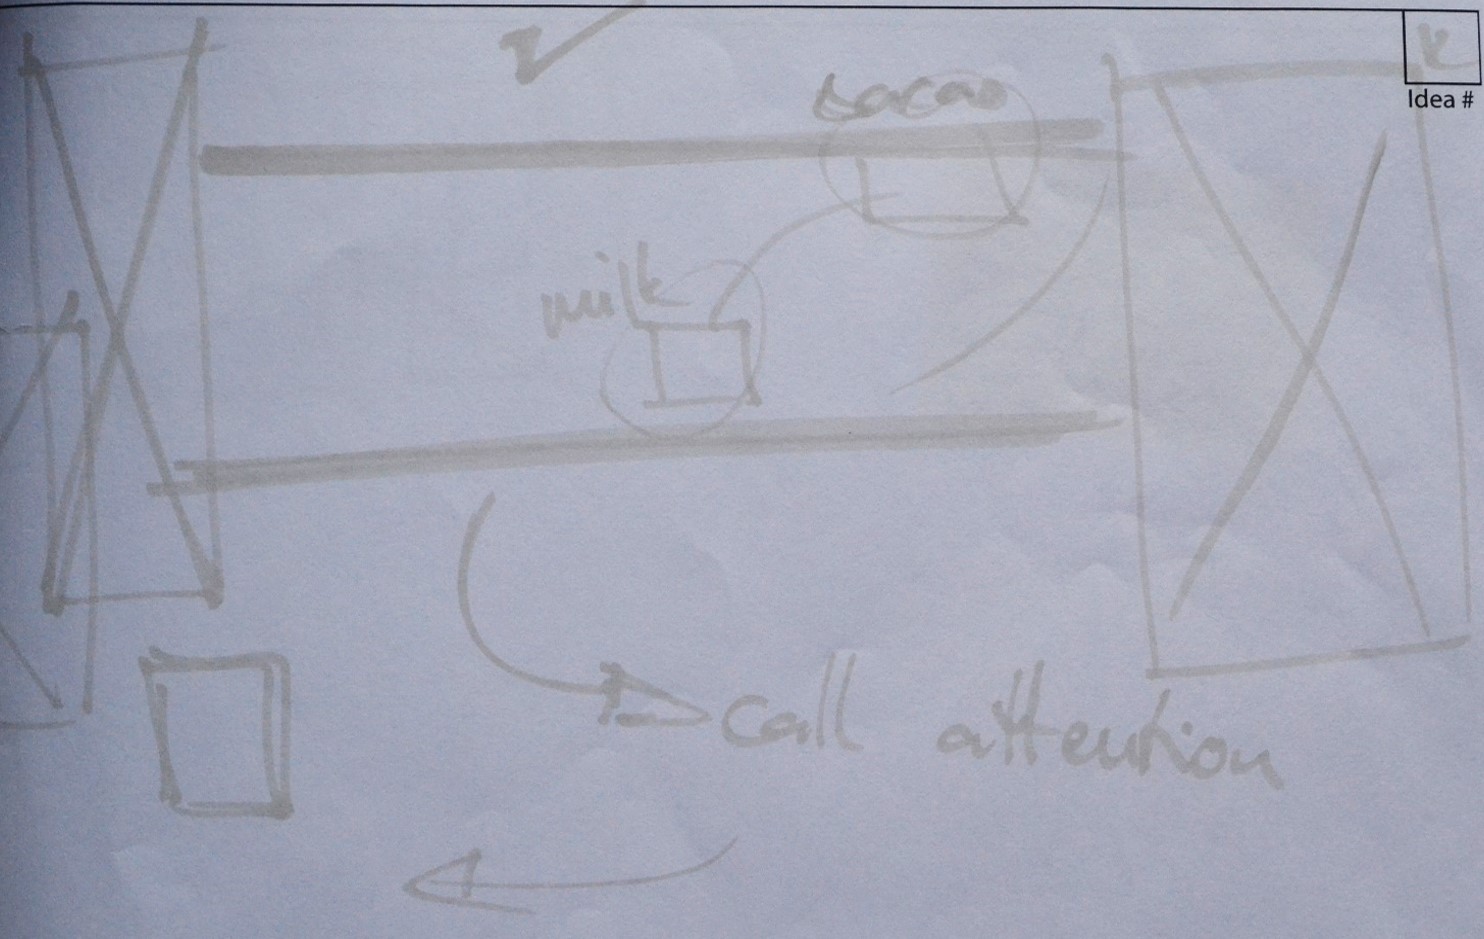 k
Idea #
cacao
milk
call attention